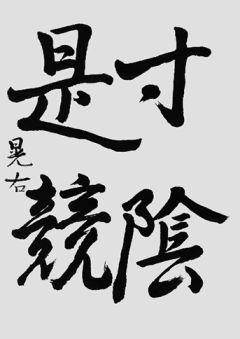 寸陰
是競
晃右